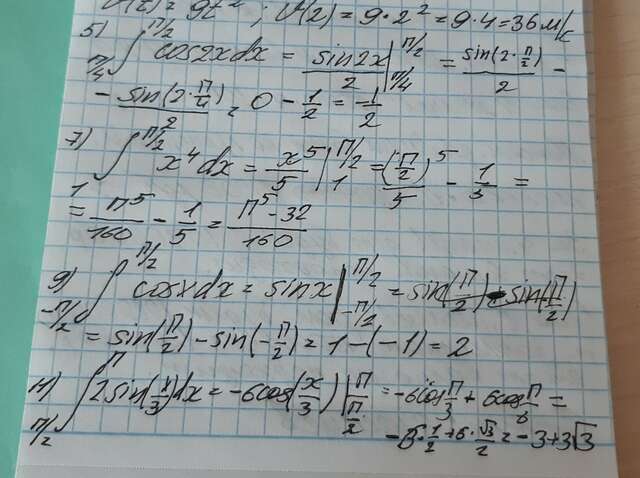 v(t) = 9t²; v(2) = 9·2² = 9·4 = 36 м/с
5) ∫_{π/4}^{π/2} cos2xdx = sin2x/2 |_{π/4}^{π/2} = sin(2·π/2)/2 -
- sin(2·π/4)/2 = 0 - 1/2 = -1/2
7) ∫_1^{π/2} x⁴dx = x⁵/5 |_1^{π/2} = (π/2)⁵/5 - 1/5 =
= π⁵/160 - 1/5 = π⁵-32/160
9) ∫_{-π/2}^{π/2} cosxdx = sinx |_{-π/2}^{π/2} = sin(π/2) - sin(-π/2)
= sin(π/2) - sin(-π/2) = 1-(-1) = 2
11) ∫_{π/2}^{π} 2sin(x/3)dx = -6cos(x/3) |_{π/2}^{π} = -6cos π/3 + 6cos π/6 =
-6·1/2 + 6·√3/2 = -3+3√3